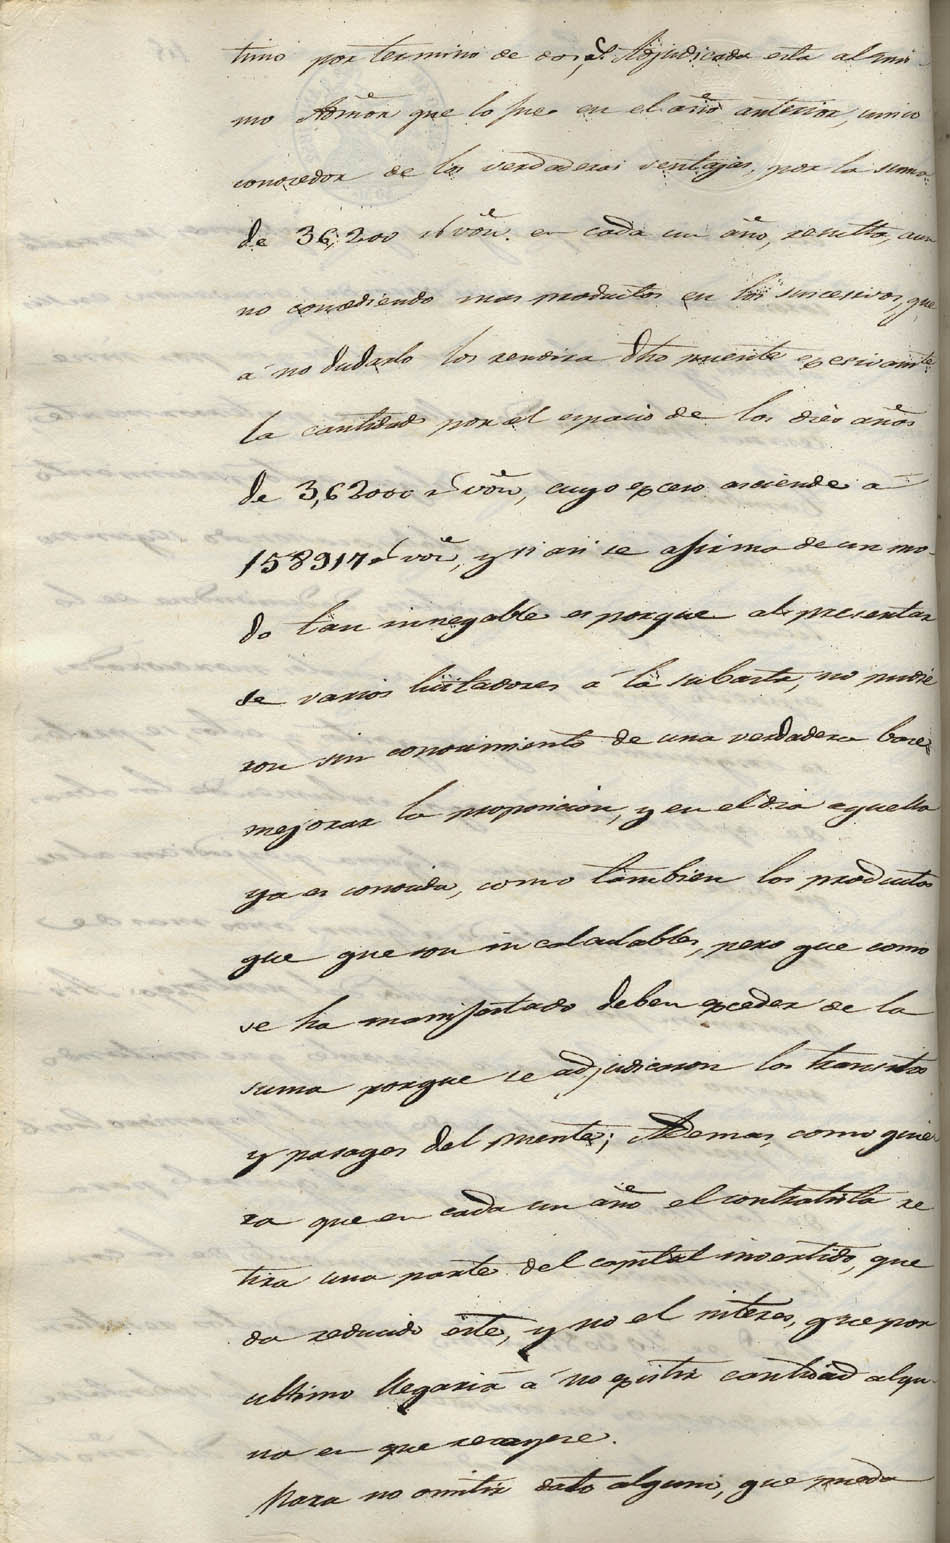 timo por termino de dos, y Adjudicada esta al mis-
mo Admōn que lo fue en el año anterior, unico
conocedor de las verdaderas ventajas, por la suma
de 36,200 r.s vōn. en cada un año, resulta, aun
no concediendo mas productos en los sucesivos, que
á no dudarlo los rendira dho puente excesivamte
la cantidad por el espacio de los dies años
de 3,62000 r.s vōn, cuyo exceso asciende a
158917 r.s vōn, y si asi se afirma de un mo-
do tan innegable es porque al presentar
se varios licitadores a la subasta, no pudie
ron sin conocimiento de una verdadera base
mejorar la proposicion, y en el dia aquella
ya es conocida, como tambien los productos
que que son incalculables, pero que como
se ha manifestado deben exceder de la
suma porque se adjudicaron los transitos
y pasages del puente; Ademas, como quie
ra que en cada un año el contratista re
tira una parte del capital invertido, que
da reducido este, y no el interes, que por
ultimo llegaria a no existir cantidad algu-
na en que recayese.
Para no omitir dato alguno, que pueda